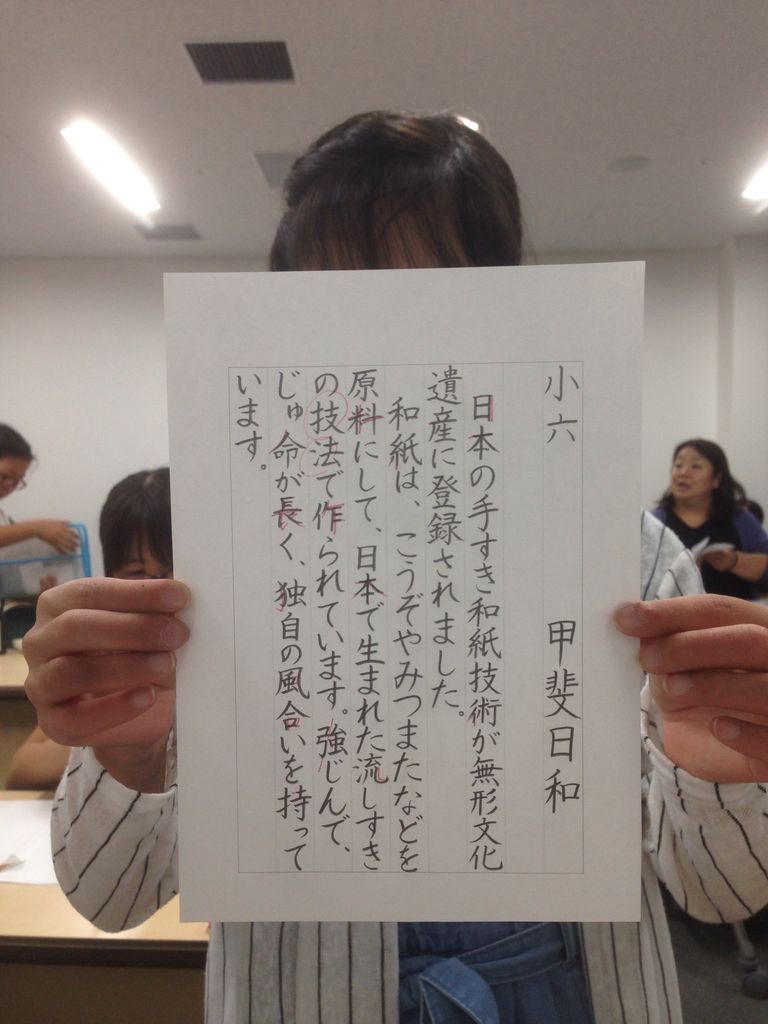 小六 甲斐日和
日本の手すき和紙技術が無形文化
遺産に登録されました。
和紙は、こうぞやみつまたなどを
原料にして、日本で生まれた流しすき
の技法で作られています。強じんで、
じゅ命が長く、独自の風合いを持って
います。